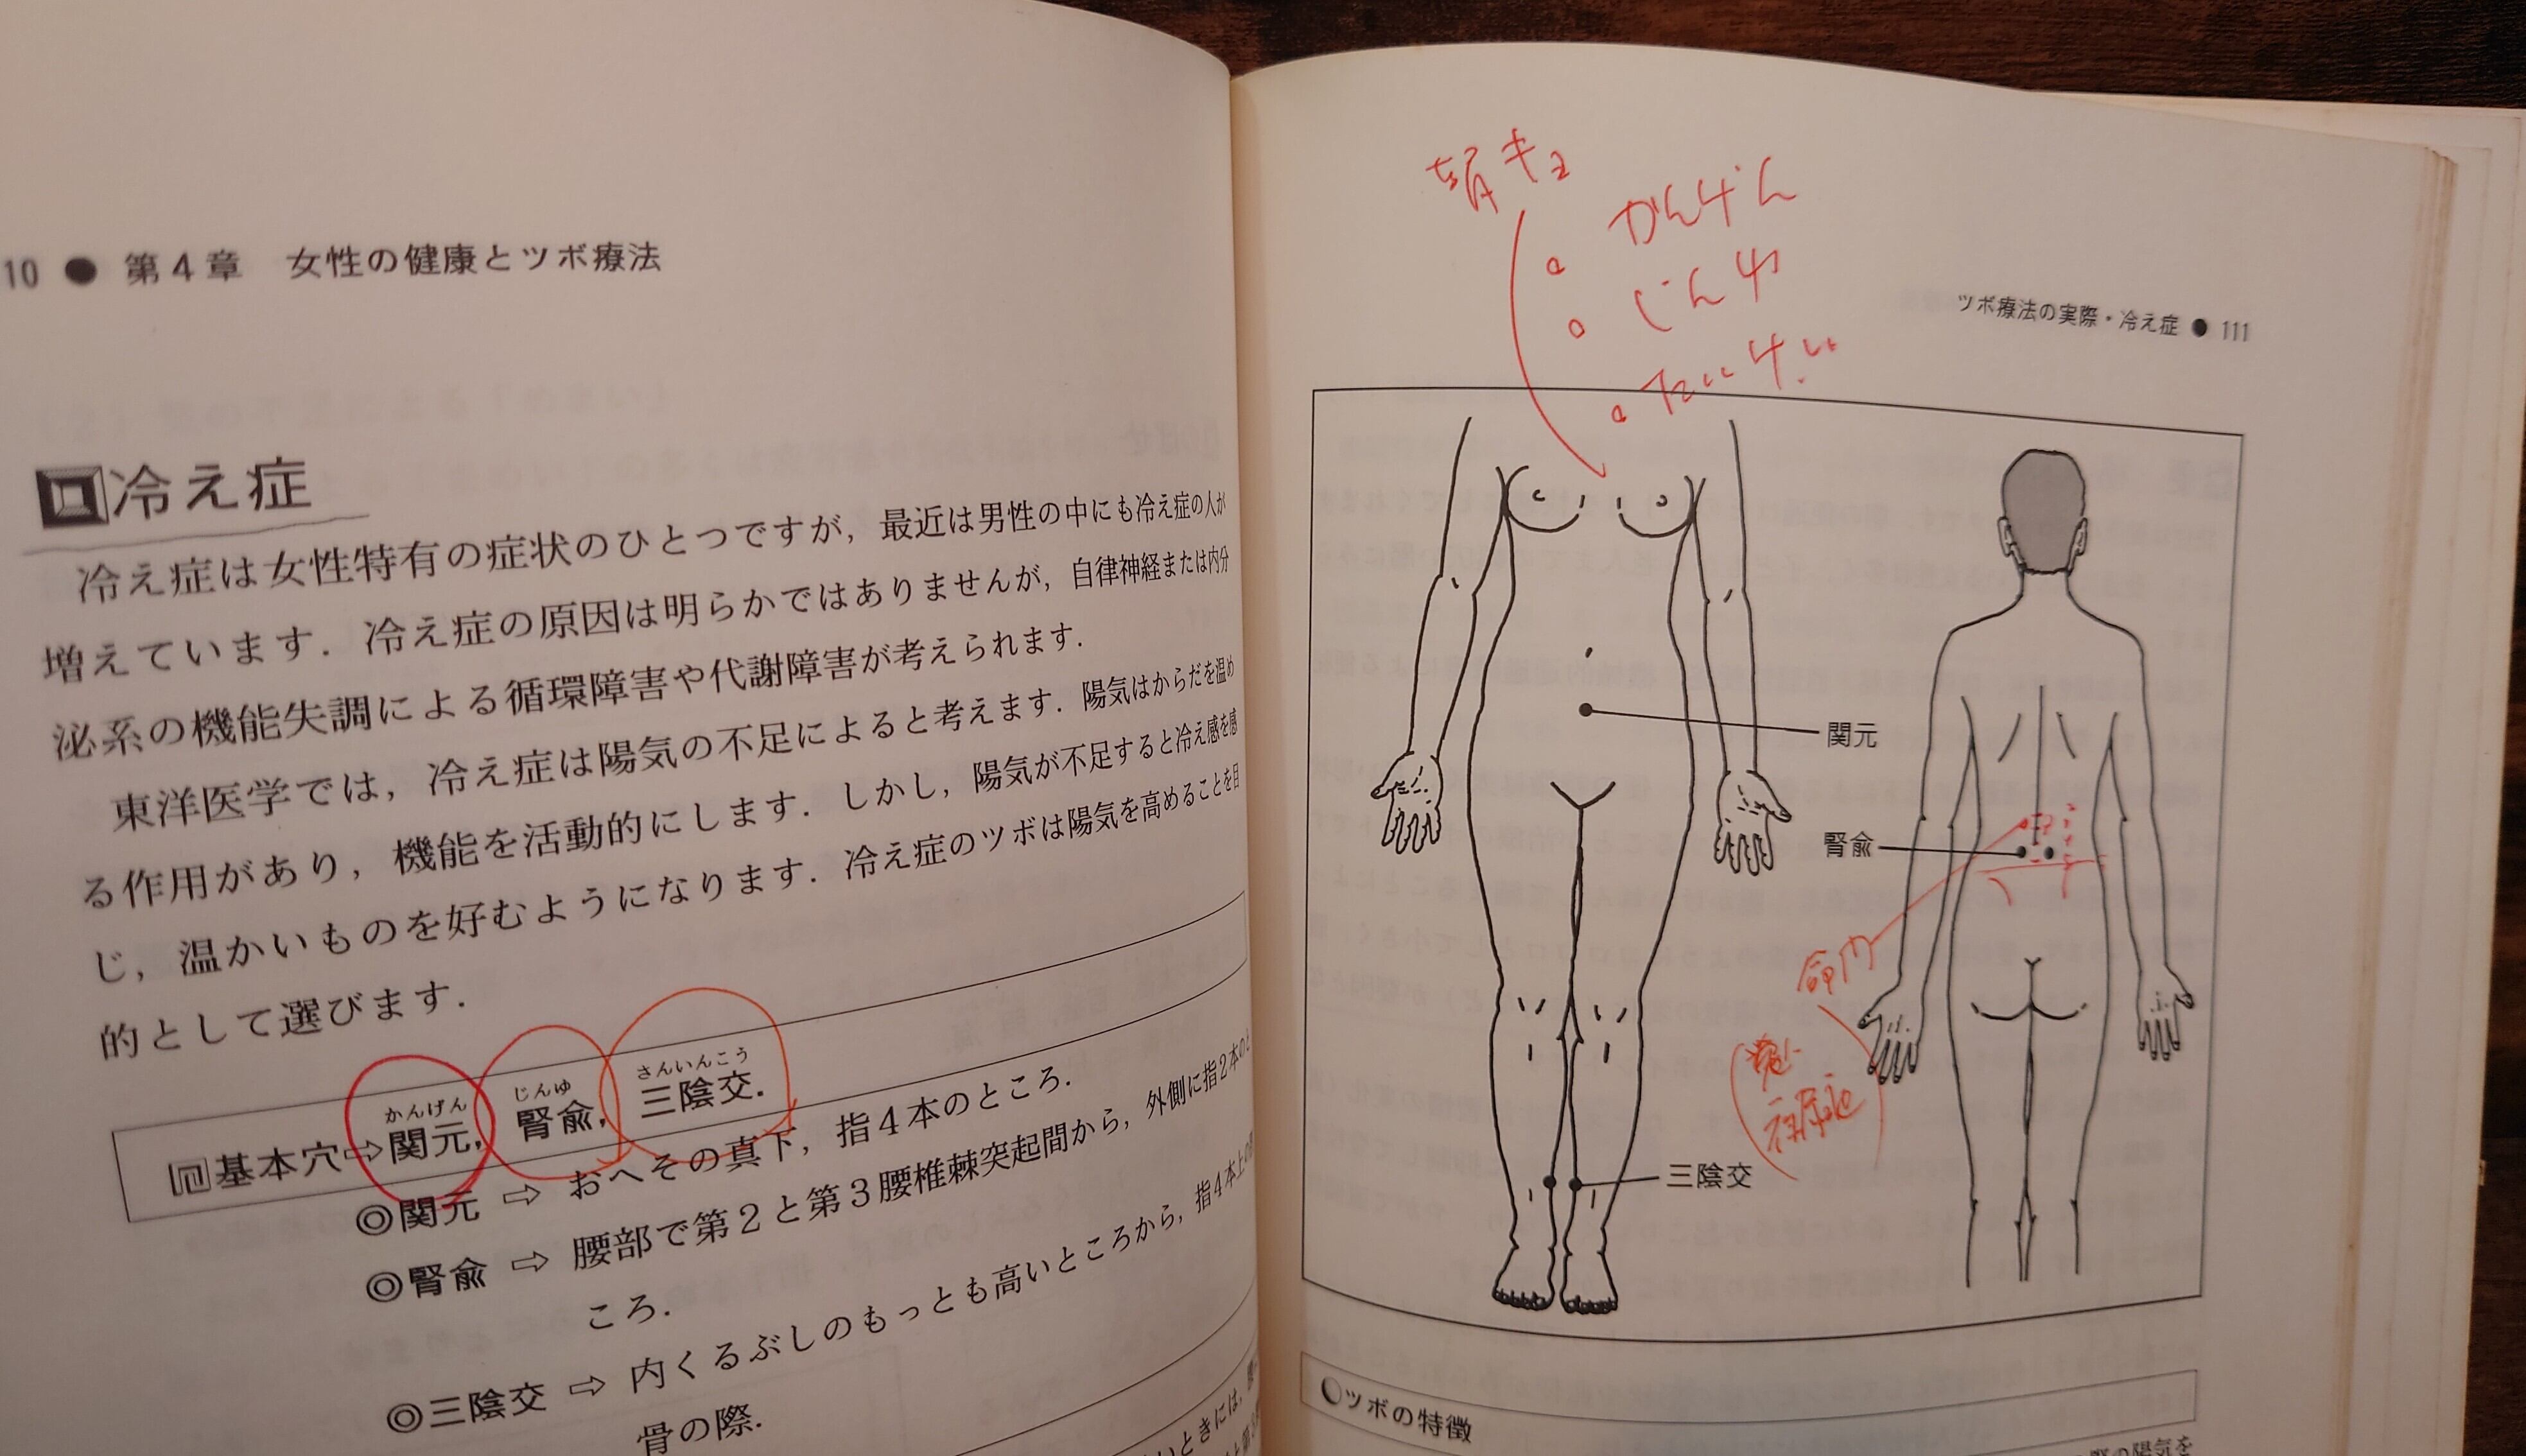 10 ● 第4章 女性の健康とツボ療法
冷え症
冷え症は女性特有の症状のひとつですが，最近は男性の中にも冷え症の人が
増えています．冷え症の原因は明らかではありませんが，自律神経または内分
泌系の機能失調による循環障害や代謝障害が考えられます．
東洋医学では，冷え症は陽気の不足によると考えます．陽気はからだを温め
る作用があり，機能を活動的にします．しかし，陽気が不足すると冷え感を感
じ，温かいものを好むようになります．冷え症のツボは陽気を高めることを目
的として選びます．
かんげん じんゆ さんいんこう
基本穴⇨関元，腎兪，三陰交．
◎関元 ⇨ おへその真下，指4本のところ．
◎腎兪 ⇨ 腰部で第2と第3腰椎棘突起間から，外側に指2本のと
ころ．
◎三陰交 ⇨ 内くるぶしのもっとも高いところから，指4本上の
骨の際．
いときには，
かんげん
じんゆ
たいけい
ツボ療法の実際・冷え症 ● 111
関元
腎兪
命門
三陰交
ツボの特徴
の陽気を